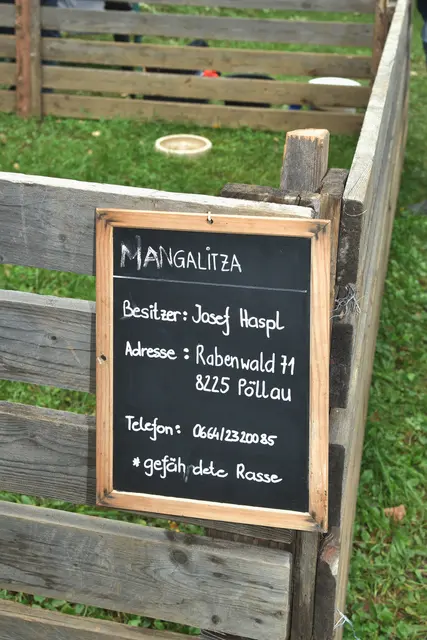 MANGALITZA
Besitzer: Josef Haspl
Adresse: Rabenwald 71
8225 Pöllau
Telefon: 0664/2320085
*gefährdete Rasse